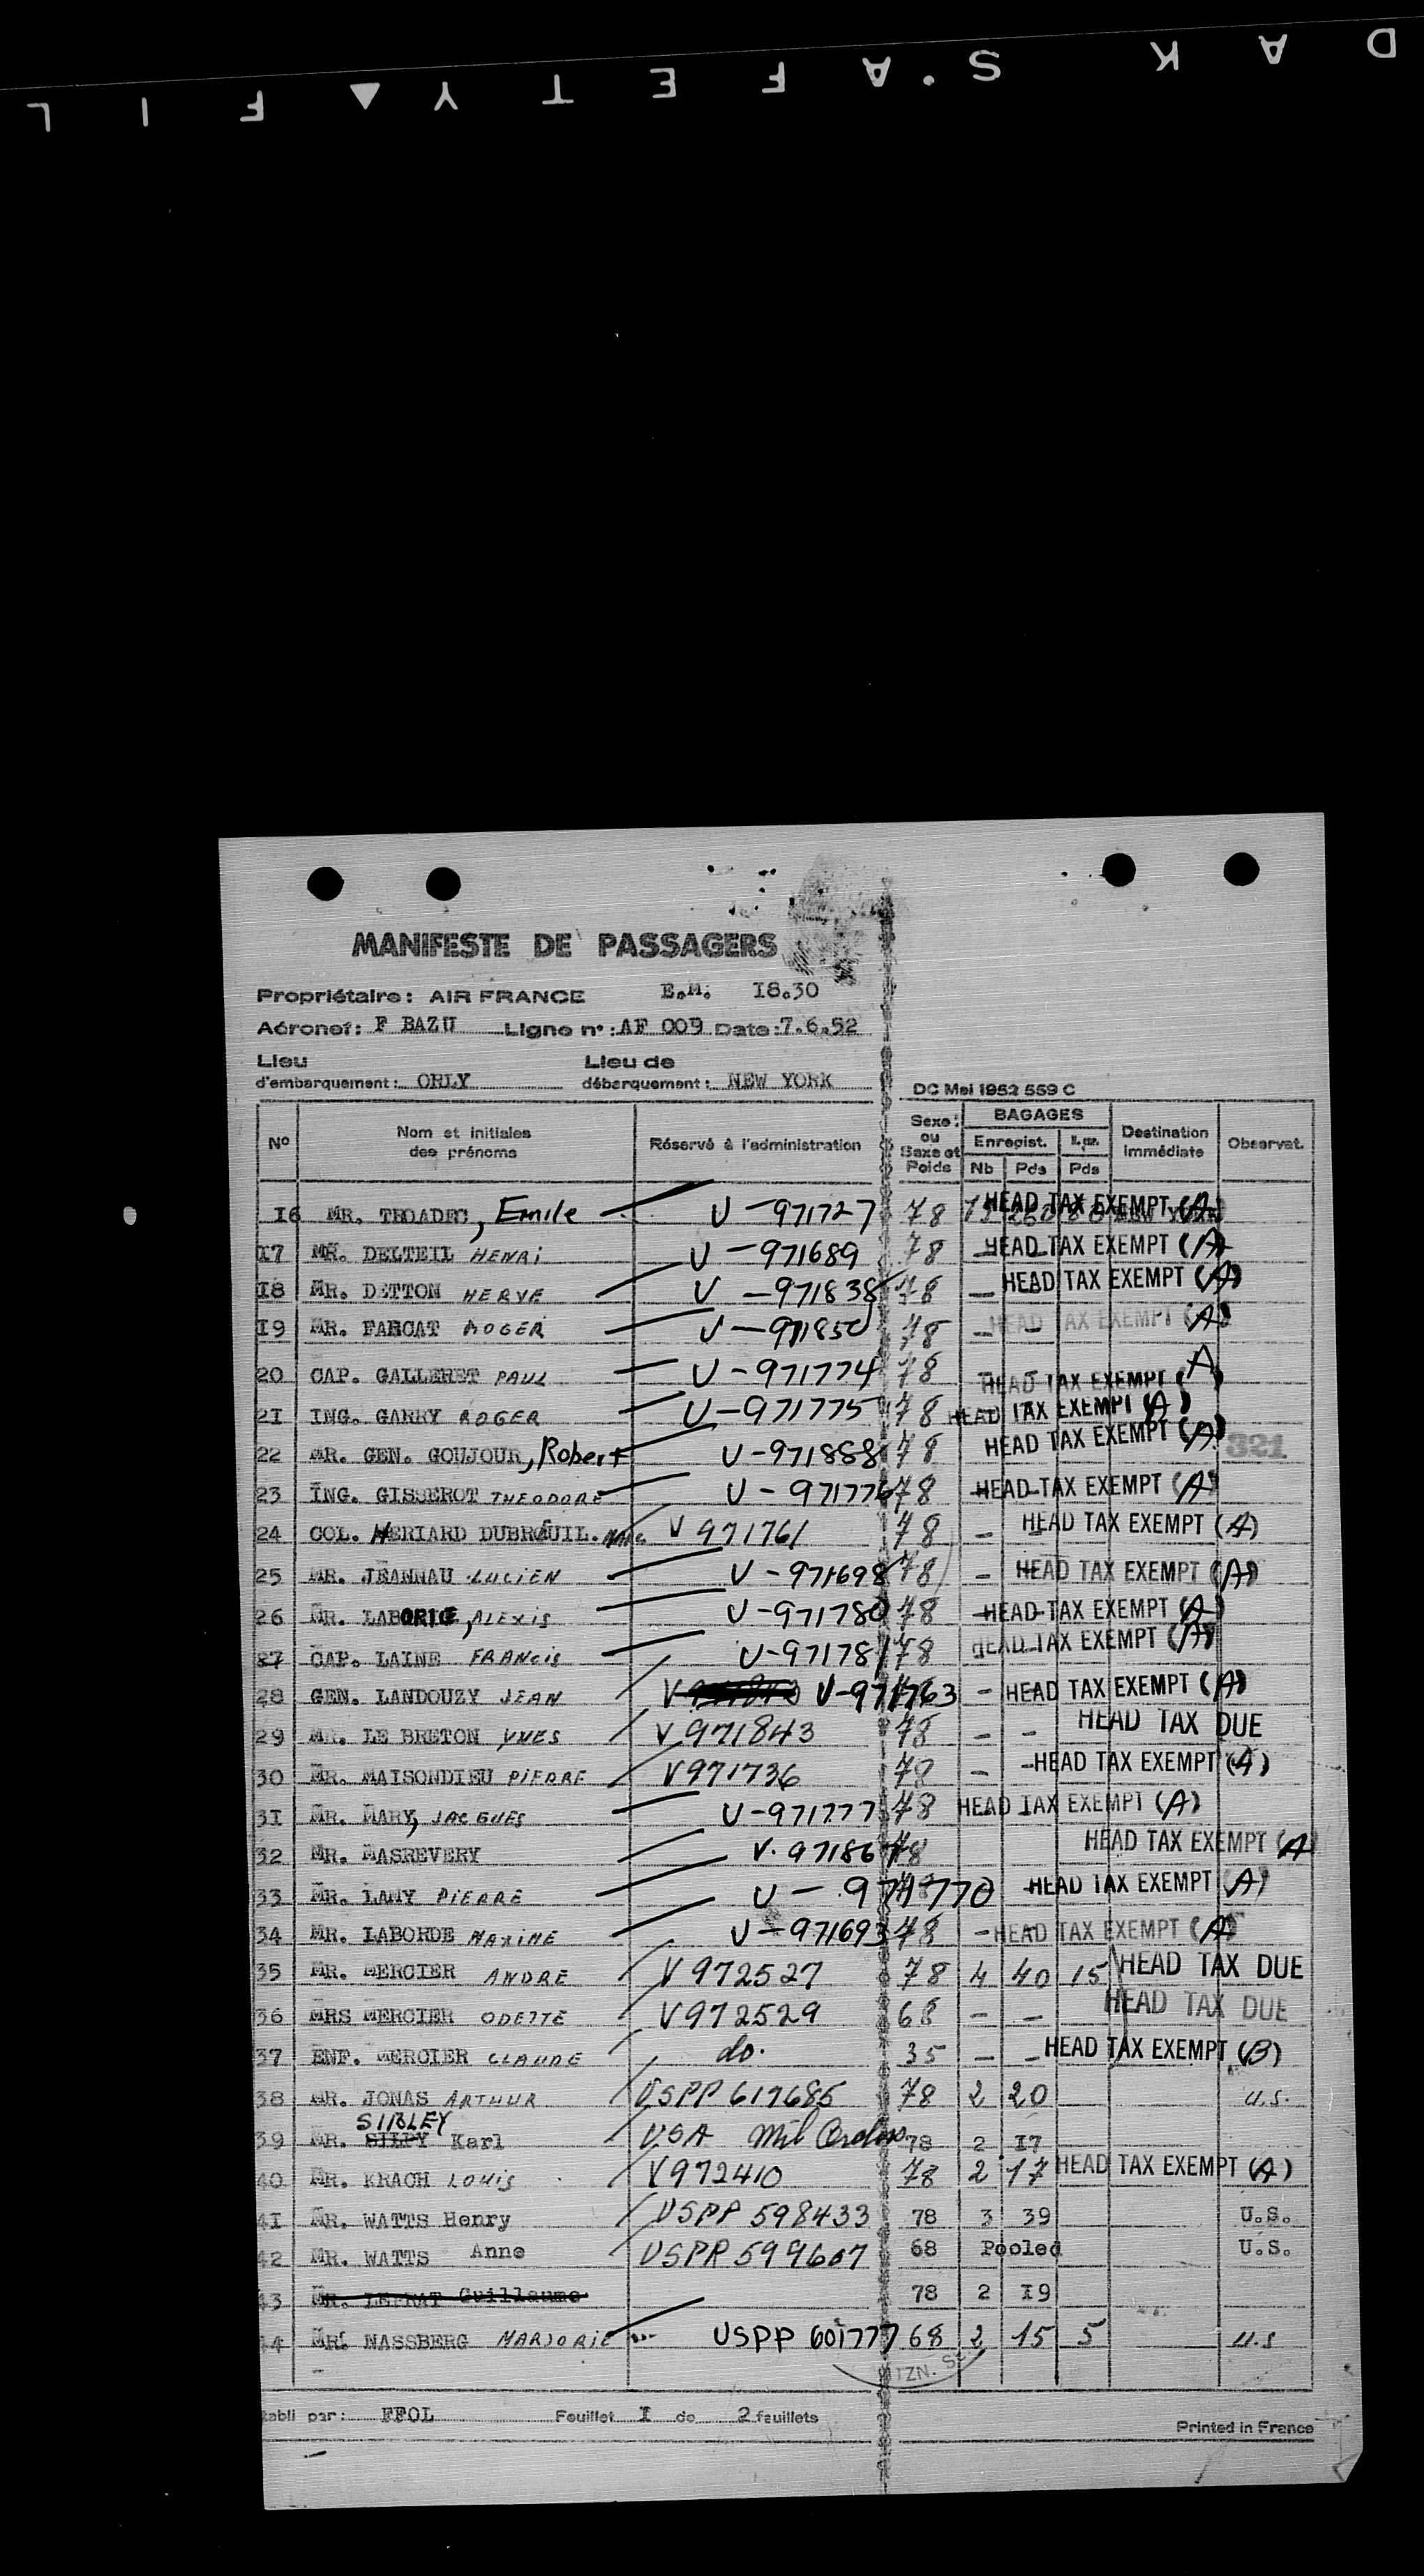 KODAK SAFETY FIL
MANIFESTE DE PASSAGERS
Propriétaire: AIR FRANCE E.M. 18.30
Aéronef: F BAZU Ligne n°: AF 009 Date: 7.6.52
Lieu d'embarquement: ORLY Lieu de débarquement: NEW YORK
DC Mei 1952 559 C
N° Nom et initiales des prénoms Réservé à l'administration Sexe: ou Sexe et Poids BAGAGES Enregist. Nb Pds Pds Destination immédiate Observat.
16 MR. TROADEC, Emile V-971727 78 HEAD TAX EXEMPT (A)
17 MR. DELTEIL HENRI V-971689 78 - - HEAD TAX EXEMPT (A)
18 MR. DETTON HERVE V-971838 78 - HEAD TAX EXEMPT (A)
19 MR. FARCAT ROGER V-971850 78 - - HEAD TAX EXEMPT (A)
20 CAP. GALLERET PAUL V-971774 78 - - HEAD TAX EXEMPT (A)
21 ING. GARRY ROGER V-971775 78 HEAD TAX EXEMPT (A)
22 MR. GEN. GOUJOUR, Robert V-971888 78 HEAD TAX EXEMPT (A) 321
23 ING. GISSEROT THEODORE V-971776 78 - - HEAD TAX EXEMPT (A)
24 COL. HERIARD DUBREUIL. MARC V 971761 78 - - HEAD TAX EXEMPT (A)
25 MR. JEANNAU LUCIEN V-971698 78 - HEAD TAX EXEMPT (A)
26 MR. LABORIE, ALEXIS V-971780 78 - - HEAD TAX EXEMPT (A)
27 CAP. LAINE FRANCIS V-971781 78 HEAD TAX EXEMPT (A)
28 GEN. LANDOUZY JEAN V-971763 - HEAD TAX EXEMPT (A)
29 MR. LE BRETON YVES V 971843 78 - - HEAD TAX DUE
30 MR. MAISONDIEU PIERRE V971736 78 - - HEAD TAX EXEMPT (A)
31 MR. MARY, JACQUES V-971777 78 HEAD TAX EXEMPT (A)
32 MR. MASREVERY 78 HEAD TAX EXEMPT (A)
33 MR. LAMY PIERRE V-971770 - HEAD TAX EXEMPT (A)
34 MR. LABORDE MAXIME V-971693 78 - HEAD TAX EXEMPT (A)
35 MR. MERCIER ANDRE V972527 78 4 40 15 HEAD TAX DUE
36 MRS MERCIER ODETTE V972529 68 - - HEAD TAX DUE
37 ENF. MERCIER CLAUDE do. 35 - - HEAD TAX EXEMPT (B)
38 MR. JONAS ARTHUR USPP 617685 78 2 20 U.S.
SIBLEY
39 MR. Karl USA Mil Orders 78 2 17
40 MR. KRACH LOUIS V972410 78 2 17 HEAD TAX EXEMPT (A)
41 MR. WATTS Henry USPP 598433 78 3 39 U.S.
42 MR. WATTS Anne USPP 599607 68 Pooled U.S.
43 Guillaume 78 2 19
44 MRS NASSBERG MARJORIE USPP 601777 68 2 15 5 U.S
Etabli par: FFOL Feuillet 1 de 2 feuillets
Printed in France